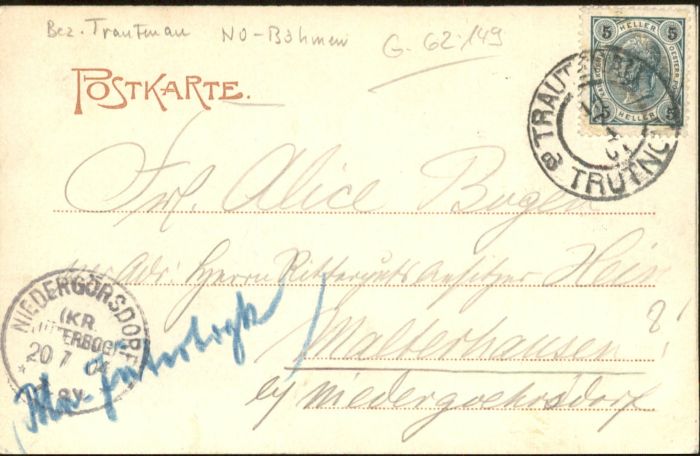 Bez. Trautenau NO-Böhmen G. 62.149
POSTKARTE.
5 HELLER 5
5 HELLER 5
TRAUTENAU
TRUTNOV
Frl. Alice Bugen
per Adr: Herrn Rittergutsbesitzer Hein
Malterhausen
by Niedergoehrsdorf
NIEDERGÖRSDORF
(KR. JÜTERBOG)
20 7 04
Jüterbogk